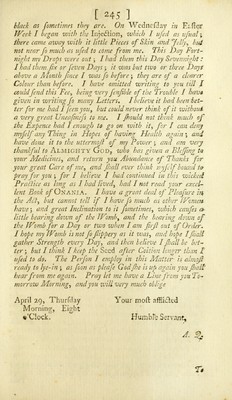 [ 245 ]
black as sometimes they are. On Wednesday in Easter
Week I began with the Injection, which I used as usual;
there came away with it little Pieces of Skin and Jelly, but
not near so much as used to come from me. This Day Fort-
night my Drops were out; I had them this Day Sevennight:
I had them six or seven Days; it was but two or three Days
above a Month since I was so before; they are of a clearer
Colour than before. I have omitted writing to you till I
could send this Fee, being very sensible of the Trouble I have
given in writing so many Letters. I believe it had been bet-
ter for me had I seen you, but could never think of it without
a very great Uneasiness to me. I should not think much of
the Expence had I enough to go on with it, for I can deny
myself any Thing in Hopes of having Health again; and
have done it to the uttermost of my Power; and am very
thankful to ALMIGHTY GOD, who has given a Blessing to
your Medicines, and return you Abundance of Thanks for
your great Care of me, and shall ever think myself bound to
pray for you; for I believe I had continued in this wicked
Practice as long as I had lived, had I not read your excel-
lent Book of ONANIA. I have a great deal of Pleasure in
the Act, but cannot tell if I have so much as other Women
have; and great Inclination to it sometimes, which causes a
little bearing down of the Womb, and the bearing down of
the Womb for a Day or two when I am first out of Order.
I hope my Womb is not so slippery as it was, and hope I shall
gather Strength every Day, and then believe I shall be bet-
ter; but I think I keep the Seed after Coition longer than I
used to do. The Person I employ in this Matter is almost
ready to lye-in; as soon as please God she is up again you shall
hear from me again. Pray let me have a Line from you To-
morrow Morning, and you will very much oblige
April 29, Thursday Your most afflicted
Morning, Eight
o'Clock. Humble Servant,
To